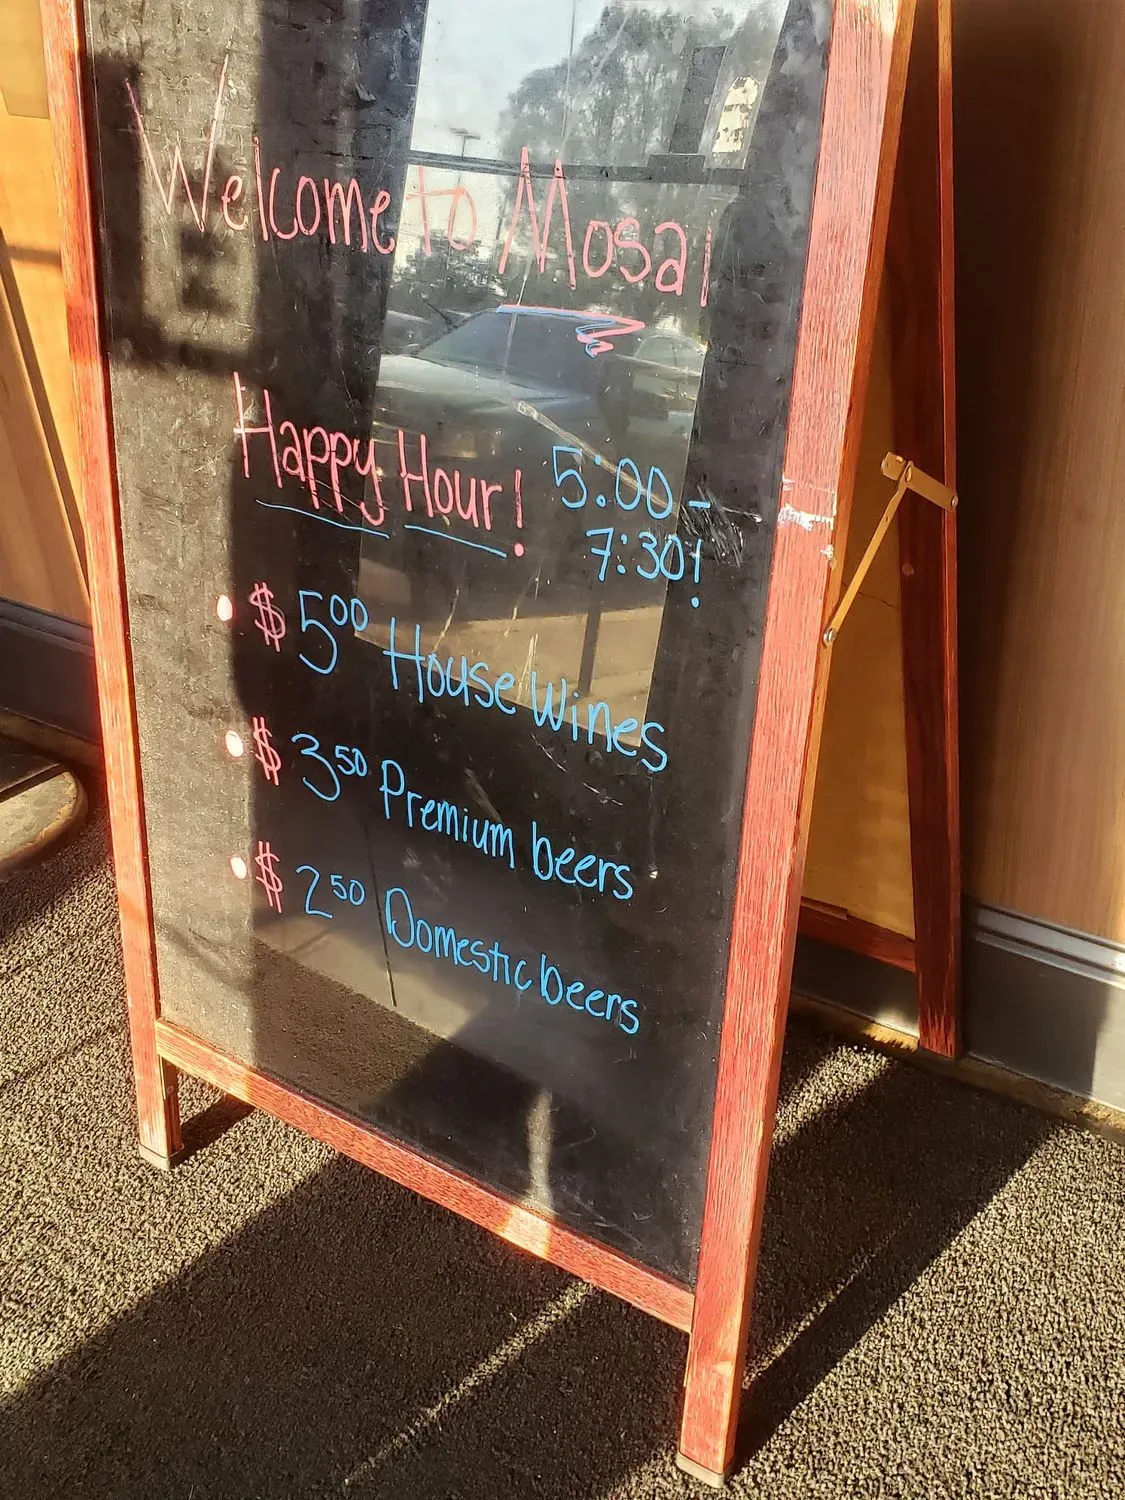 Welcome to Mosai
Happy Hour! 5:00 -
7:30!
$ 5⁰⁰ House Wines
$ 3⁵⁰ Premium beers
$ 2⁵⁰ Domestic beers